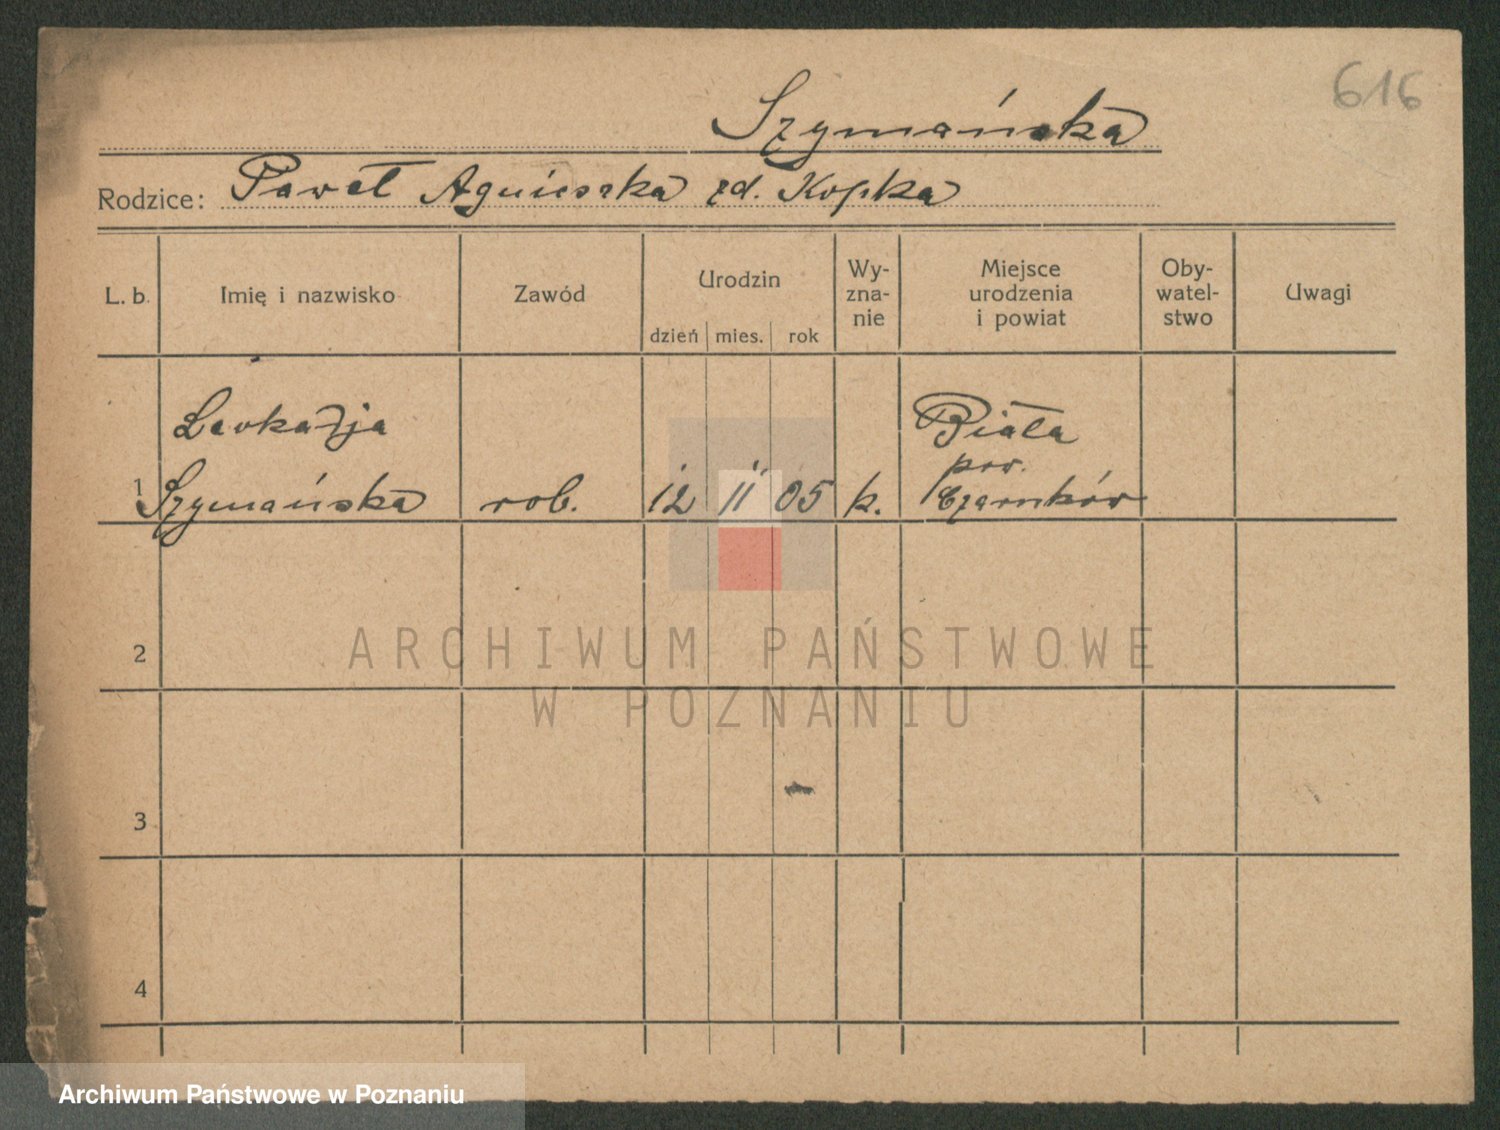 616
Szymańska
Rodzice: Paweł Agnieszka zd. Kopka
L. b. Imię i nazwisko Zawód Urodzin dzień mies. rok Wy-zna-nie Miejsce urodzenia i powiat Oby-watel-stwo Uwagi
Leokadja Biała
pow.
1 Szymańska rob. 12 11 05 k. Czarnków
2
3
4
ARCHIWUM PAŃSTWOWE
W POZNANIU
Archiwum Państwowe w Poznaniu